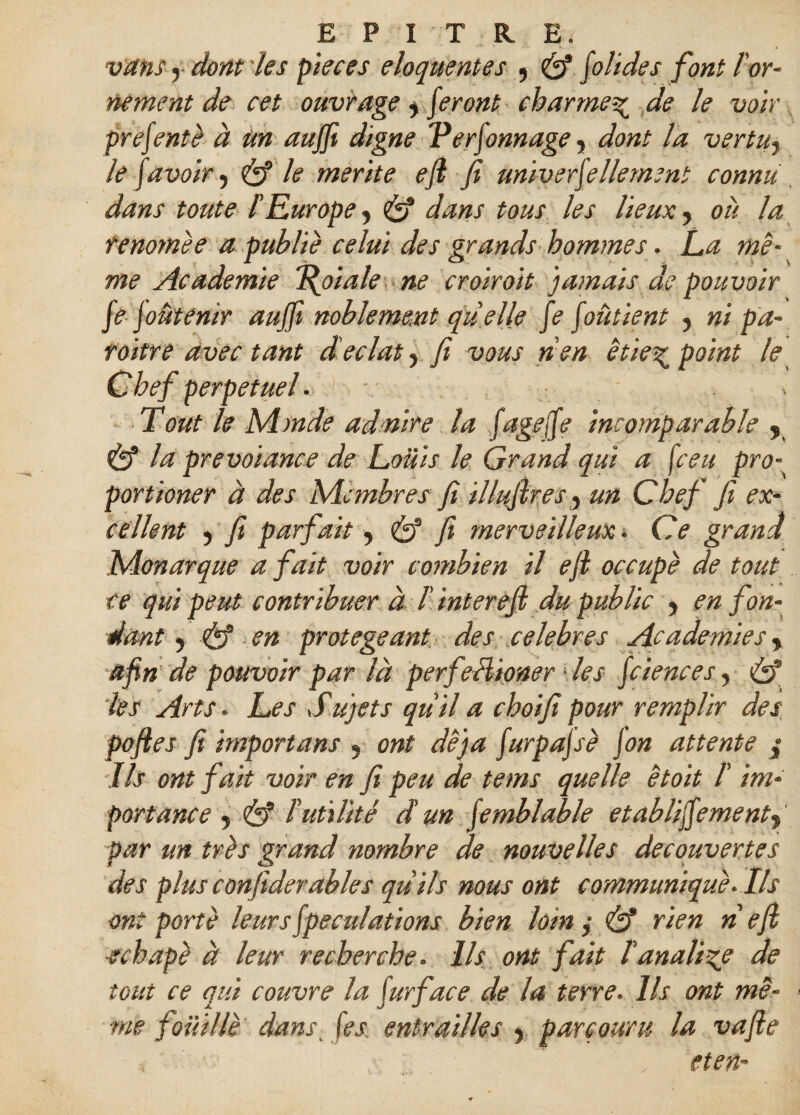 E P I T R E.
vans, dont les pieces eloquentes , & ſolides font l'or-
nement de cet ouvrage , ſeront charmez de le voir
preſentè à un auſſi digne Perſonnage, dont la vertu,
le ſavoir, & le merite eſt ſi univerſellement connu
dans toute l'Europe, & dans tous les lieux, où la
renomèe a publiè celui des grands hommes. La mê-
me Academie Roiale ne croiroit jamais de pouvoir
ſe ſoûtenir auſſi noblement qu'elle ſe ſoûtient , ni pa-
roitre avec tant d'eclat, ſi vous n'en êtiez point le
Chef perpetuel.
Tout le Monde admire la ſageſſe incomparable ,
& la prevoiance de Loüis le Grand qui a ſceu pro-
portioner à des Membres ſi illuſtres, un Chef ſi ex-
cellent , ſi parfait , & ſi merveilleux. Ce grand
Monarque a fait voir combien il eſt occupè de tout
ce qui peut contribuer à l'intereſt du public , en fon-
dant , & en protegeant des celebres Academies,
afin de pouvoir par là perfectioner les ſciences, &
les Arts. Les Sujets qu'il a choiſi pour remplir des
poſtes ſi importans , ont dêja ſurpaſsè ſon attente ;
Ils ont fait voir en ſi peu de tems quelle êtoit l' im-
portance , & l'utilité d'un ſemblable etabliſſement,
par un très grand nombre de nouvelles decouvertes
des plus conſiderables qu'ils nous ont communiquè. Ils
ont portè leurs ſpeculations bien loin ; & rien n'eſt
echapè à leur recherche. Ils ont fait l'analize de
tout ce qui couvre la ſurface de la terre. Ils ont mê-
me foüillè dans ſes entrailles , parcouru la vaſte
eten-